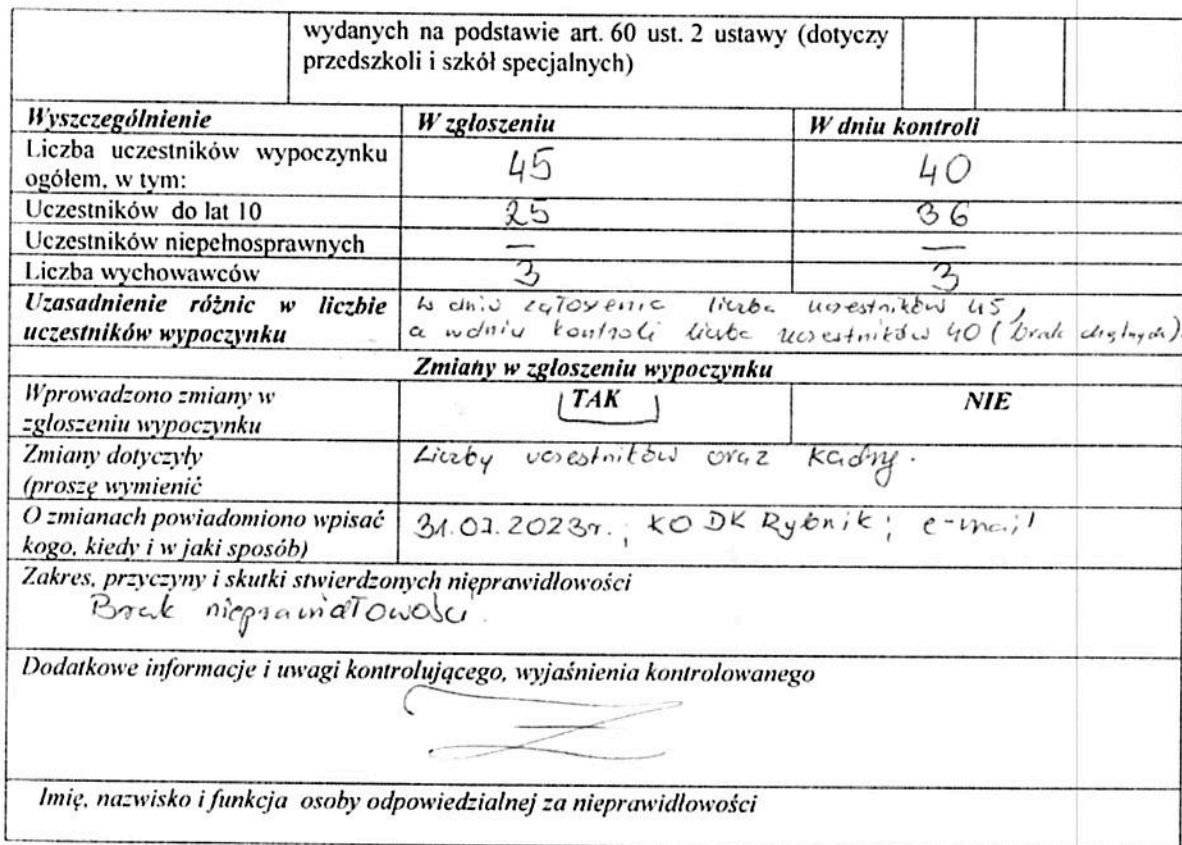 wydanych na podstawie art. 60 ust. 2 ustawy (dotyczy
przedszkoli i szkół specjalnych)
Wyszczególnienie W zgłoszeniu W dniu kontroli
Liczba uczestników wypoczynku
ogółem, w tym: 45 40
Uczestników do lat 10 25 36
Uczestników niepełnosprawnych — —
Liczba wychowawców 3 3
Uzasadnienie różnic w liczbie
uczestników wypoczynku
w dniu zgłoszenia liczba uczestników 45,
a w dniu kontroli liczba uczestników 40 (brak chętnych).
Zmiany w zgłoszeniu wypoczynku
Wprowadzono zmiany w
zgłoszeniu wypoczynku
TAK NIE
Zmiany dotyczyły
(proszę wymienić
Liczby uczestników oraz kadry.
O zmianach powiadomiono wpisać
kogo, kiedy i w jaki sposób)
31.07.2023r.; KO DK Rybnik; e-mail
Zakres, przyczyny i skutki stwierdzonych nieprawidłowości
Brak nieprawidłowości.
Dodatkowe informacje i uwagi kontrolującego, wyjaśnienia kontrolowanego
Imię, nazwisko i funkcja osoby odpowiedzialnej za nieprawidłowości